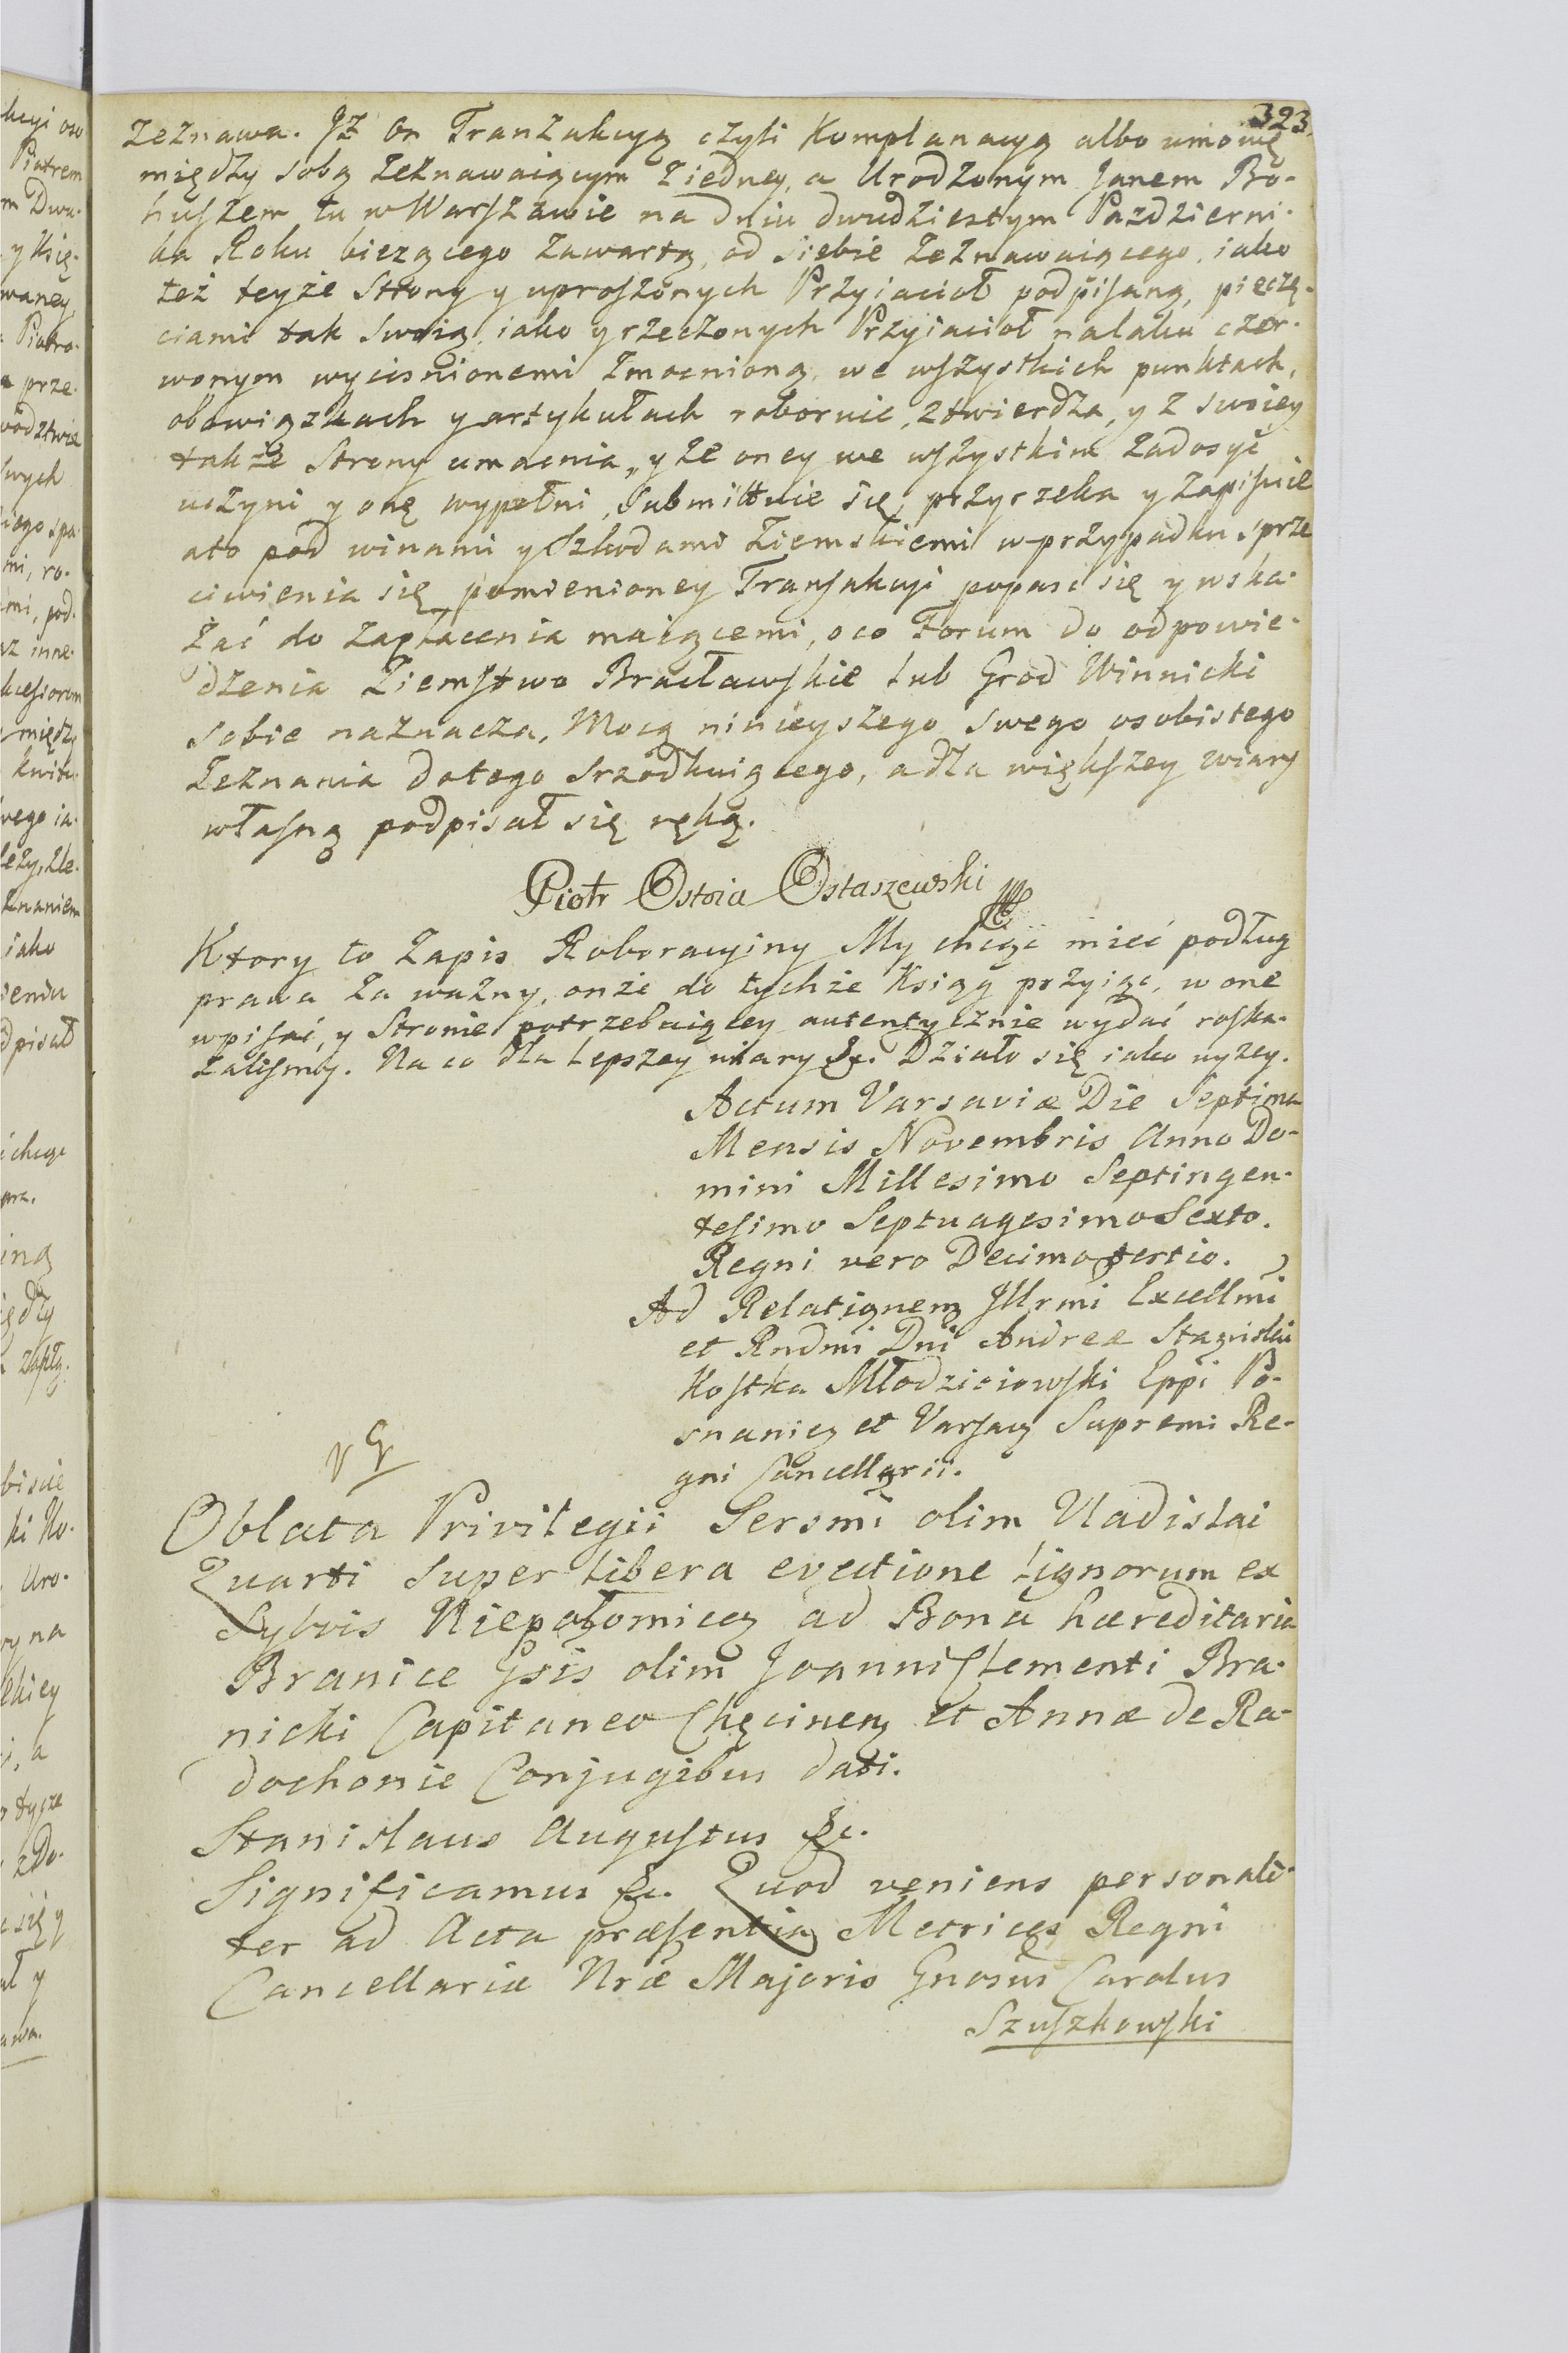 323.
zeznawa. Jż on Tranzakcyą czyli Komplanacyą albo umowę
między sobą zeznawaiącym z iedney, a Urodzonym Janem Bo-
huszem tu w Warszawie na dniu dwudziestym Pazdzierni-
ka Roku bieżącego zawartą, od siebie zeznawaiącego, iako
też teyże Strony y uproszonych Przyiacioł podpisaną, pieczę-
ciami tak swoią, iako y rzeczonych Przyiacioł na laku czer-
wonym wycisnionemi zmocnioną, we wszystkich punktach,
obowiązkach y artykułach roboruie, ztwierdza, y z swoiey
także Strony umacnia, y że oney we wszystkim zadosyć
uczyni y onę wypełni, submittuie się, przyrzeka y zapisuie
a to pod winami y szkodami Ziemskiemi w przypadku sprze
ciwienia się pomienioney Transakcyi popaść się y wska-
zać do zapłacenia maiącemi, o co Forum do odpowie-
dzenia Ziemstwo Bracławskie lub Grod Winnicki
sobie naznacza, Mocą ninieyszego swego osobistego
Zeznania do tego srzodkuiącego, a dla większey wiary
własną podpisał się ręką.
Piotr Ostoia Ostaszewski
Ktory to Zapis Roboracyiny My chcąc mieć podług
prawa za ważny, onże do tychże Ksiąg przyiąć, w one
wpisać, y Stronie potrzebuiącey autentycznie wydać roska-
zalismy. Na co dla lepszey wiary &c. Działo się iako wyzey.
Actum Varsaviæ Die Septima
Mensis Novembris Anno Do-
mini Millesimo Septingen-
tesimo Septuagesimo Sexto.
Regni vero Decimo tertio.
Ad Relationem Jllrmi Excellmi
et Rndmi Dni Andreæ Stanislai
Kostka Młodzieiowski Eppi Po-
snanien et Varsav Supremi Re-
gni Cancellarii.
Oblata Privilegii Sersmi olim Vladislai
Quarti super libera evectione lignorum ex
Sylvis Niepołomicen ad Bona hæreditaria
Branice Gsis olim Joanni Clementi Bra-
nicki Capitaneo Chęcinen et Annæ de Ra-
dochonie Conjugibus dati.
Stanislaus Augustus &c.
Significamus &c. Quod veniens personali-
ter ad Acta præsentia Metrices Regni
Cancellariæ Nræ Majoris Gnosus Carolus
Szuszkowski